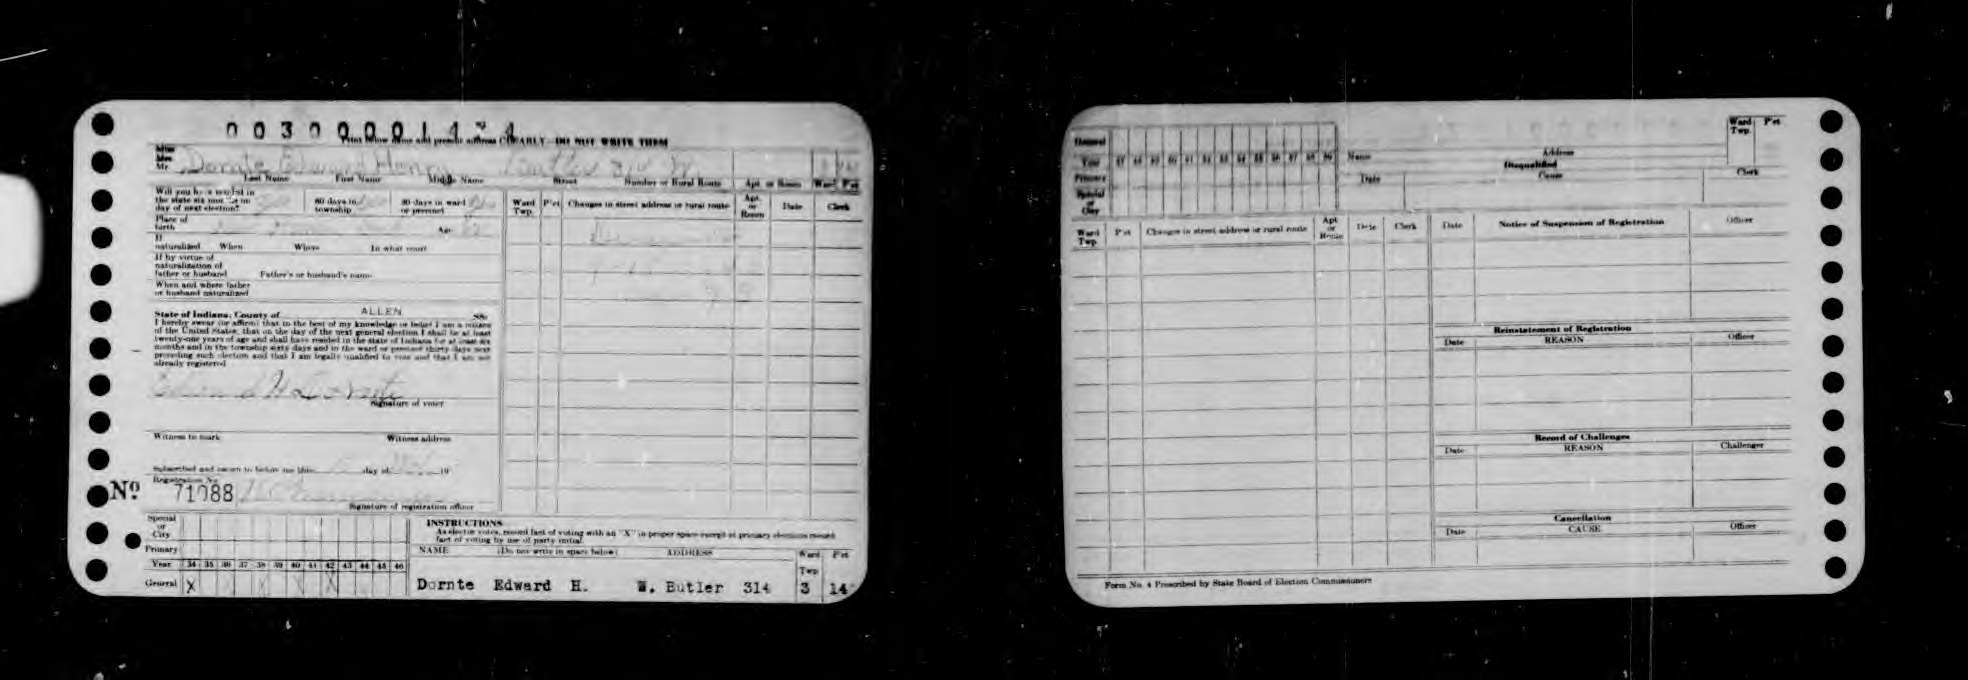 0 0 3 0 0 0 0 1 4
DO NOT WRITE THEM
Miss
Mrs
Mr. Dornte Edward Henry Butler 314 W
Last Name First Name Middle Name Street Number or Rural Route Apt. or Room Ward P'ct
Will you have resided in
the state six months on
day of next election?
60 days in
township
30 days in ward
or precinct
Place of
birth
Age
If
naturalized When Where In what court
If by virtue of
naturalization of
father or husband Father's or husband's name
When and where father
or husband naturalized
State of Indiana, County of ALLEN SS:
I hereby swear (or affirm) that to the best of my knowledge or belief I am a citizen
of the United States, that on the day of the next general election I shall be at least
twenty-one years of age and shall have resided in the state of Indiana for at least six
months and in the township sixty days and in the ward or precinct thirty days next
preceding such election and that I am legally qualified to vote and that I am not
already registered
Edward H Dornte
Signature of voter
Witness to mark Witness address
Subscribed and sworn to before me this day of 19
Registration No.
No. 71088
Signature of registration officer
Ward
Twp. P'ct Changes in street address or rural route Apt.
or
Room Date Clerk
Special
or
City
Primary
Year 34 35 36 37 38 39 40 41 42 43 44 45 46
General X X X
INSTRUCTIONS
As elector votes, record fact of voting with an "X" in proper space except at primary elections record
fact of voting by use of party initial.
NAME (Do not write in space below) ADDRESS Ward
Twp P'ct
Dornte Edward H. W. Butler 314 3 14
General
Year 47 48 49 50 51 52 53 54 55 56 57 58 59
Primary
Special
or
City
Name Address Ward
Twp. P'ct
Disqualified
Date Cause Clerk
Ward
Twp. P'ct Changes in street address or rural route Apt
or
Route Date Clerk
Date Notice of Suspension of Registration Officer
Reinstatement of Registration
Date REASON Officer
Record of Challenges
Date REASON Challenger
Cancellation
Date CAUSE Officer
Form No. 4 Prescribed by State Board of Election Commissioners